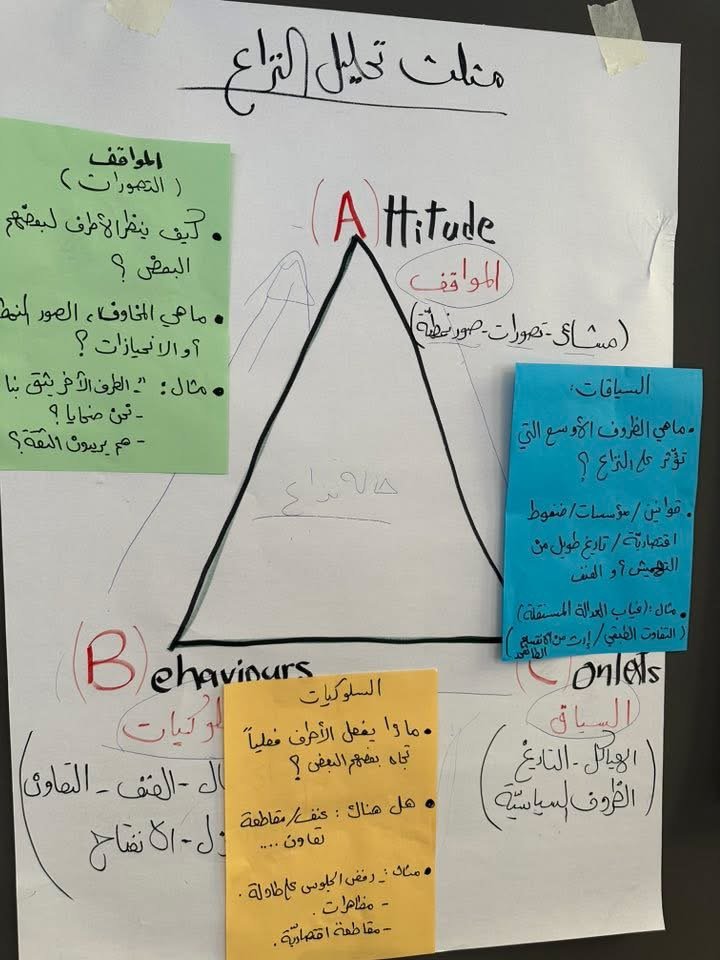 مثلث تحليل النزاع
المواقف
(التصورات)
كيف ينظر الأطرف لبعضهم
البعض ؟
ما هي المخاوف، الصور النمط
أو الانحيازات ؟
مثال: "- الطرف الآخر يثق بنا
- نحن ضحايا ؟
- هم يريدون الثقة ؟
(A)ttitude
المواقف
(مشاعر - تصورات - صور نمطيّة)
حالة نزاع
السياقات:
ما هي الظروف الأوسع التي
تؤثر على النزاع ؟
قوانين / مؤسسات / ضغوط
اقتصاديّة / تاريخ طويل من
التهميش ؟ و العنف
مثال: (غياب العدالة المستقلة)
(التفاوت الطبقي / إرث من الانقسام
(B)ehaviours
لوكيات
ال - العنف - التعاون
زل - الانفتاح
السلوكيات
ماذا يفعل الأطرف فعلياً
تجاه بعضهم البعض ؟
هل هناك: عنف / مقاطعة
تعاون ....
مثال: - رفض الجلوس على طاولة .
- مظاهرات .
- مقاطعة اقتصاديّة .
(C)ontexts
السياق
(الهياكل - التاريخ
الظروف السياسيّة)